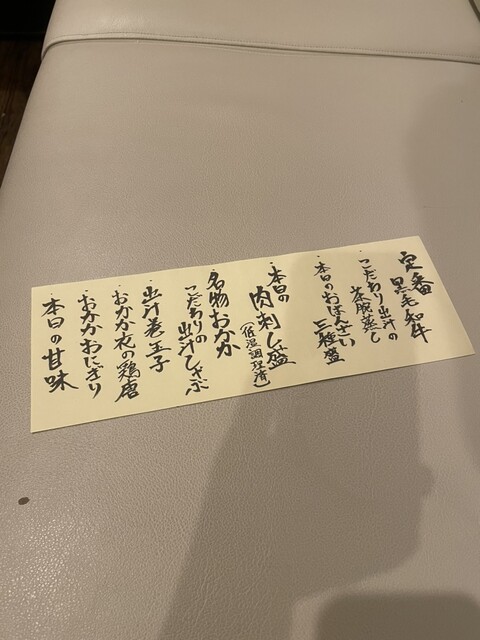 定番
黒毛和牛
・こだわり出汁の
茶碗蒸し
・本日のおばんざい
三種盛
・本日の
肉刺し盛
(低温調理済)
・名物おかか
こだわりの
出汁しゃぶ
・出汁巻玉子
・おかか衣の鶏唐
・おかかおにぎり
・本日の甘味